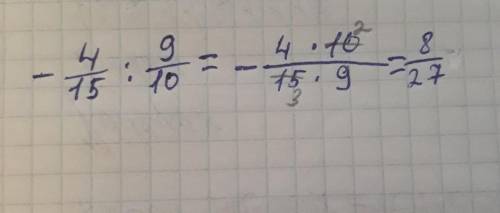 - 4/15 : 9/10 = - (4 · 10 2)/(15 3 · 9) = 8/27